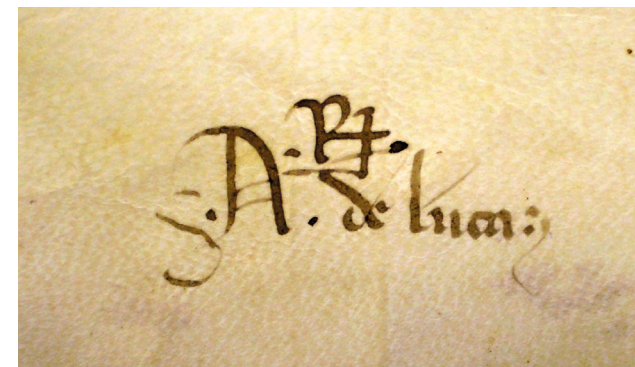 .A. de luca: